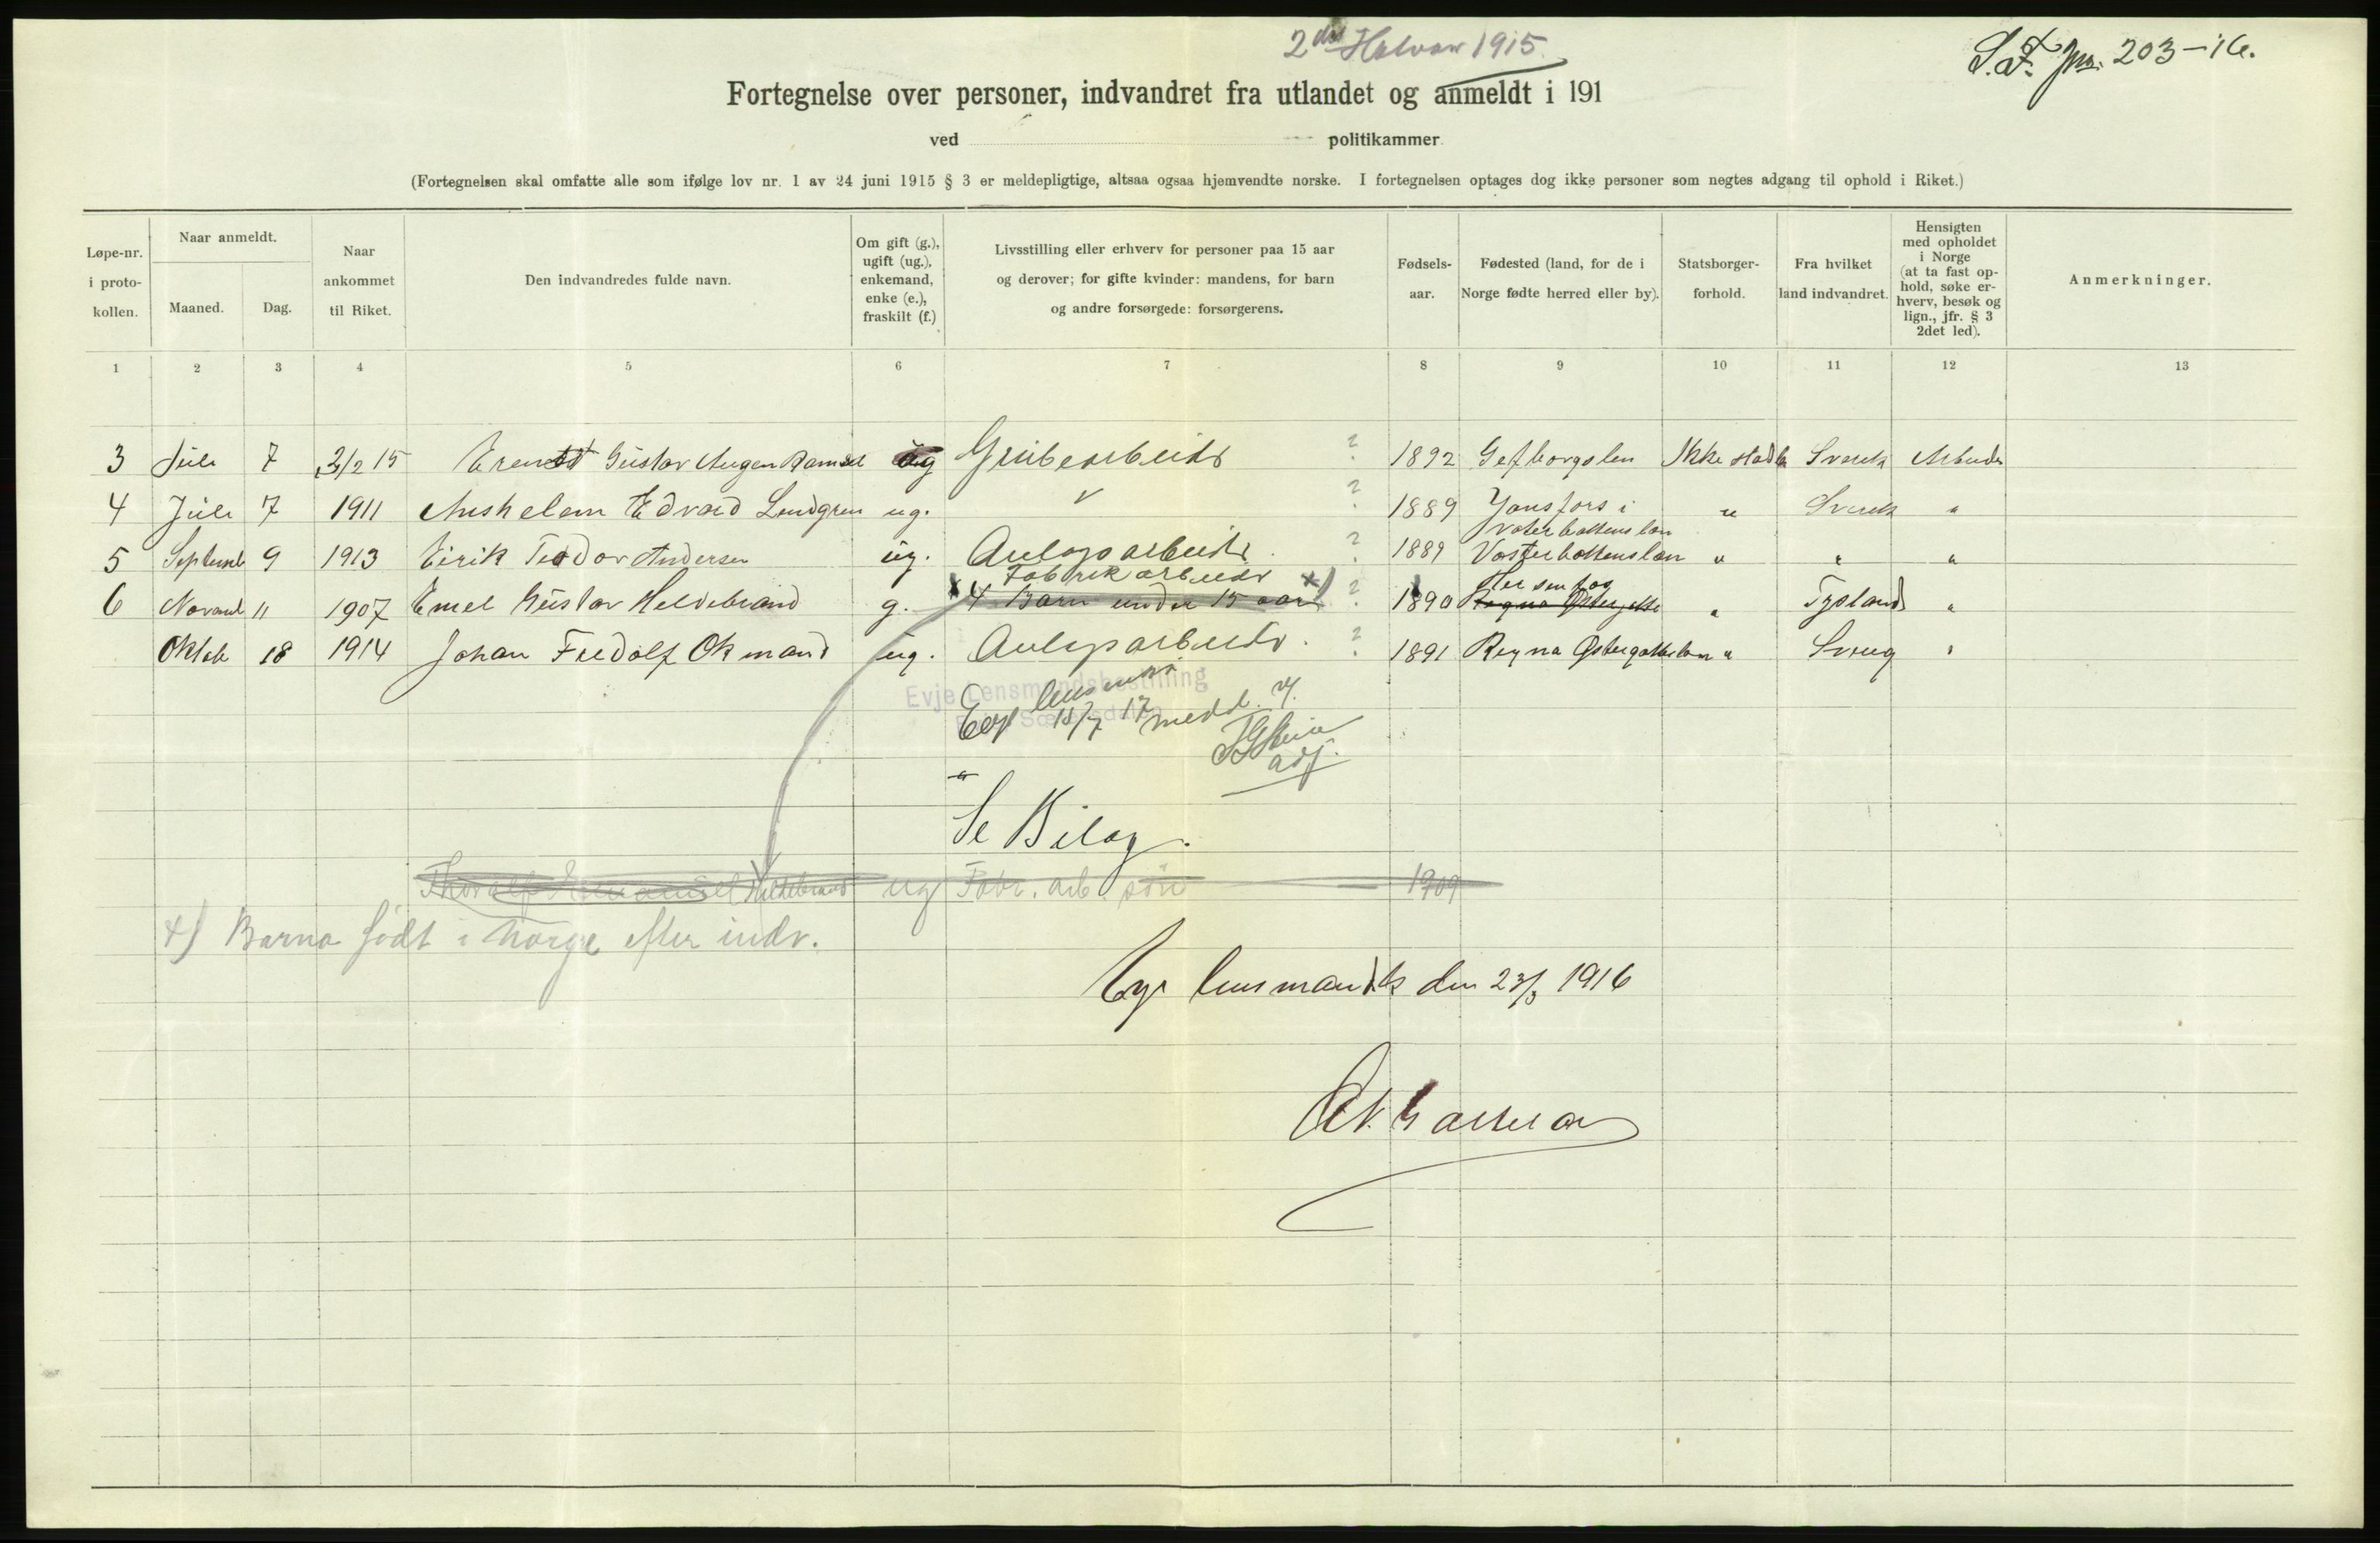 2det Halvaar 1915
S.F. jnr. 203-16.
Fortegnelse over personer, indvandret fra utlandet og anmeldt i 191
ved politikammer
(Fortegnelsen skal omfatte alle som ifølge lov nr. 1 av 24 juni 1915 § 3 er meldepligtige, altsaa ogsaa hjemvendte norske. I fortegnelsen optages dog ikke personer som negtes adgang til ophold i Riket.)
Løpe-nr. i proto-kollen.
Naar anmeldt.
Maaned.
Dag.
Naar ankommet til Riket.
Den indvandredes fulde navn.
Om gift (g.), ugift (ug.), enkemand, enke (e.), fraskilt (f.)
Livsstilling eller erhverv for personer paa 15 aar og derover; for gifte kvinder: mandens, for barn og andre forsørgede: forsørgerens.
Fødsels-aar.
Fødested (land, for de i Norge fødte herred eller by).
Statsborger-forhold.
Fra hvilket land indvandret.
Hensigten med opholdet i Norge (at ta fast op-hold, søke er-hverv, besøk og lign., jfr. § 3 2det led).
Anmerkninger.
1 2 3 4 5 6 7 8 9 10 11 12 13
3 Juli 7 2/2 15 Gustav ug Grubearbeider ? 1892 Gefborgslen Ikke Arbeider
4 Juli 7 1911 Anshelem Edvard Lendgren ug. v ? 1889 Yonsfors i " "
Vasterbottenslan
5 Septemb 9 1913 Eirik Teodor Andersen ug. Anlegsarbeider ? 1889 Vasterbottenslan " " "
Fabrikarbeider
6 Novemb 11 1907 Emel Gustav Heldebrand g. 4 Barn under 15 aar x) ? 1890 " Tysland "
Oktob 18 1914 Johan Fredolf Okmand ug. Anlegsarbeider ? 1891 Regna Østergøttelan " "
Evje Lensmandsbestilling
lensmann
18/7 17 medd.
adj.
Se Bilag.
Hildebrand ug Fabr. arb. søn 1909
x) Barna født i Norge efter indv.
lensmandsk den 23/3 1916